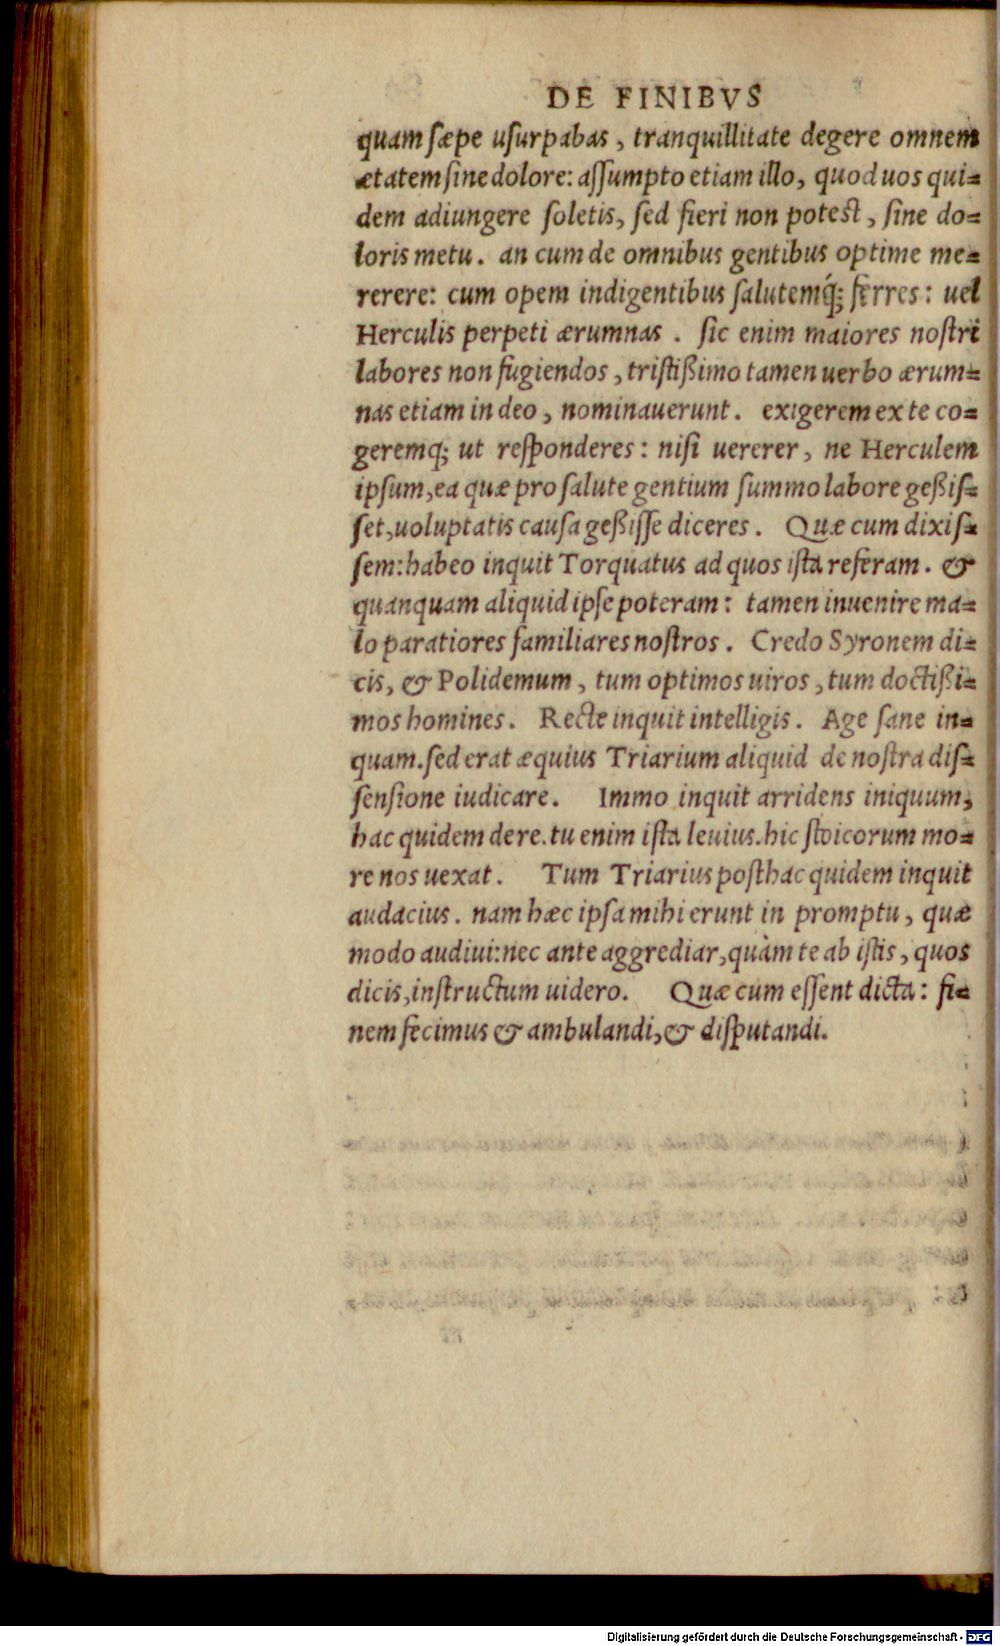 DE FINIBVS
quam sæpe usurpabas, tranquillitate degere omnem
ætatem sine dolore: assumpto etiam illo, quod uos qui=
dem adiungere soletis, sed fieri non potest, sine do=
loris metu. an cum de omnibus gentibus optime me=
rerere: cum opem indigentibus salutemq́; ferres: uel
Herculis perpeti ærumnas. sic enim maiores nostri
labores non fugiendos, tristißimo tamen uerbo ærum=
nas etiam in deo, nominauerunt. exigerem ex te co=
geremq; ut responderes: nisi uererer, ne Herculem
ipsum, ea quæ pro salute gentium summo labore geßis=
set, uoluptatis causa geßisse diceres. Quæ cum dixis=
sem: habeo inquit Torquatus ad quos ista referam. &
quanquam aliquid ipse poteram: tamen inuenire ma=
lo paratiores familiares nostros. Credo Syronem di=
cis, & Polidemum, tum optimos uiros, tum doctißi=
mos homines. Recte inquit intelligis. Age sane in=
quam. sed erat æquius Triarium aliquid de nostra dis=
sensione iudicare. Immo inquit arridens iniquum,
hac quidem de re. tu enim ista leuius. hic stoicorum mo=
re nos uexat. Tum Triarius posthac quidem inquit
audacius. nam hæc ipsa mihi erunt in promptu, quæ
modo audiui: nec ante aggrediar, quàm te ab istis, quos
dicis, instructum uidero. Quæ cum essent dicta: fi=
nem fecimus & ambulandi, & disputandi.
Digitalisierung gefördert durch die Deutsche Forschungsgemeinschaft - DFG